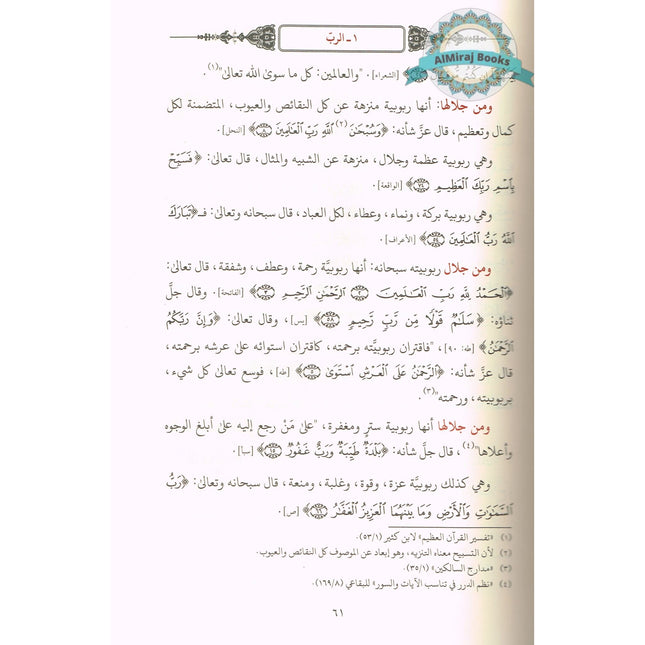 ١ ـ الربّ
AlMiraj Books
[الشعراء]. "والعالمين: كل ما سوىٰ الله تعالىٰ"(١).
ومن جلالها: أنها ربوبية منزهة عن كل النقائص والعيوب، المتضمنة لكل
كمال وتعظيم، قال عزَّ شأنه: ﴿وَسُبْحَٰنَ(٢) ٱللَّهِ رَبِّ ٱلْعَٰلَمِينَ ۝٨﴾ [النحل].
وهي ربوبية عظمة وجلال، منزهة عن الشبيه والمثال، قال تعالىٰ: ﴿فَسَبِّحْ
بِٱسْمِ رَبِّكَ ٱلْعَظِيمِ ۝٧٤﴾ [الواقعة].
وهي ربوبية بركة، ونماء، وعطاء، لكل العباد، قال سبحانه وتعالىٰ: فـ﴿تَبَارَكَ
ٱللَّهُ رَبُّ ٱلْعَٰلَمِينَ ۝٥٤﴾ [الأعراف].
ومن جلال ربوبيته سبحانه: أنها ربوبيَّة رحمة، وعطف، وشفقة، قال تعالىٰ:
﴿ٱلْحَمْدُ لِلَّهِ رَبِّ ٱلْعَٰلَمِينَ ۝٢ ٱلرَّحْمَٰنِ ٱلرَّحِيمِ ۝٣﴾ [الفاتحة]. وقال جلَّ
ثناؤه: ﴿سَلَٰمٌ قَوْلًا مِّن رَّبٍّ رَّحِيمٍ ۝٥٨﴾ [يس]، وقال تعالىٰ: ﴿وَإِنَّ رَبَّكُمُ
ٱلرَّحْمَٰنُ﴾ [طه: ٩٠]، "فاقتران ربوبيَّته برحمته، كاقتران استوائه علىٰ عرشه برحمته،
قال عزَّ شأنه: ﴿ٱلرَّحْمَٰنُ عَلَى ٱلْعَرْشِ ٱسْتَوَىٰ ۝٥﴾ [طه]، فوسع تعالىٰ كل شيء،
بربوبيته، ورحمته"(٣).
ومن جلالها أنها ربوبية سترٍ ومغفرة، "علىٰ مَنْ رجع إليه علىٰ أبلغ الوجوه
وأعلاها"(٤)، قال جلَّ شأنه: ﴿بَلْدَةٌ طَيِّبَةٌ وَرَبٌّ غَفُورٌ ۝١٥﴾ [سبأ].
وهي كذلك ربوبيَّة عزة، وقوة، وغلبة، ومنعة، قال سبحانه وتعالىٰ: ﴿رَبُّ
ٱلسَّمَٰوَٰتِ وَٱلْأَرْضِ وَمَا بَيْنَهُمَا ٱلْعَزِيزُ ٱلْغَفَّٰرُ ۝٦٦﴾ [ص].
(١) «تفسير القرآن العظيم» لابن كثير (٥٣/١).
(٢) لأن التسبيح معناه التنزيه، وهو إبعاد عن الموصوف كل النقائص والعيوب.
(٣) «مدارج السالكين» (٣٥/١).
(٤) «نظم الدرر في تناسب الآيات والسور» للبقاعي (١٦٩/٨).
٦١